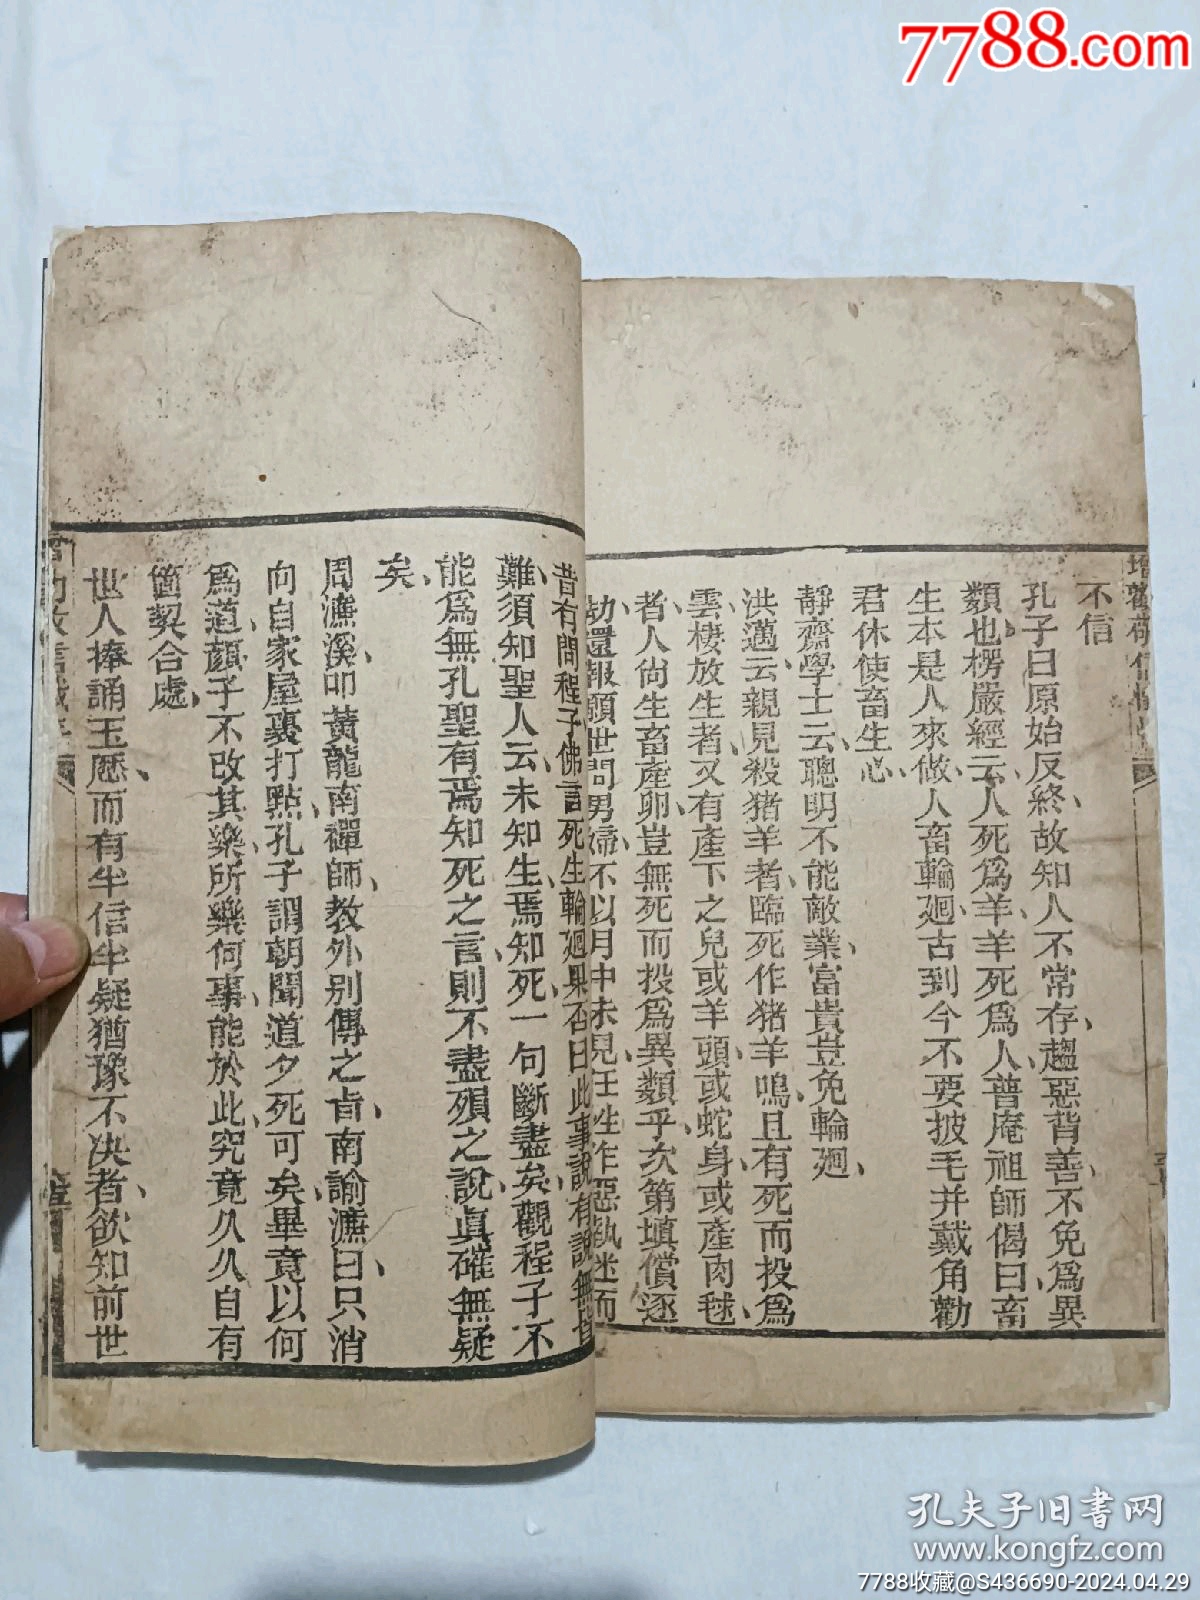 7788.com
不信
孔子曰原始反終、故知人不常存、趨惡背善、不免爲異
類也楞嚴經云、人死爲羊、羊死爲人、普庵祖師偈曰、畜
生本是人來做、人畜輪廻、古到今不要披毛并戴角勸
君休使畜生心、
靜齋學士云、聰明不能敵業、富貴豈免輪廻、
洪邁云親見殺猪羊者、臨死作猪羊鳴、且有死而投爲
雲棲放生者、又有產下之兒或羊頭、或蛇身、或產肉毬、
者、人尙生畜產卵、豈無死而投爲異類乎、次第塡償逐
劫還報願世間男婦、不以月中未見
昔有問程子佛言死生輪廻果否曰此事說有說無皆
難、須知聖人云未知生、焉知死、一句斷盡矣、觀程子不
能爲無孔聖有焉知死之言、則不盡殞之說、眞確無疑
矣、
周濂溪、叩黃龍南禪師、教外別傳之旨、南諭濂曰、只消
向自家屋裏打點、孔子謂朝聞道夕死可矣、畢竟以何
爲道、顏子不改其樂、所樂何事、能於此究竟久久自有
箇契合處、
世人捧誦玉厯、而有半信半疑猶豫不决者、欲知前世
孔夫子旧书网
www.kongfz.com
7788收藏@S436690-2024.04.29